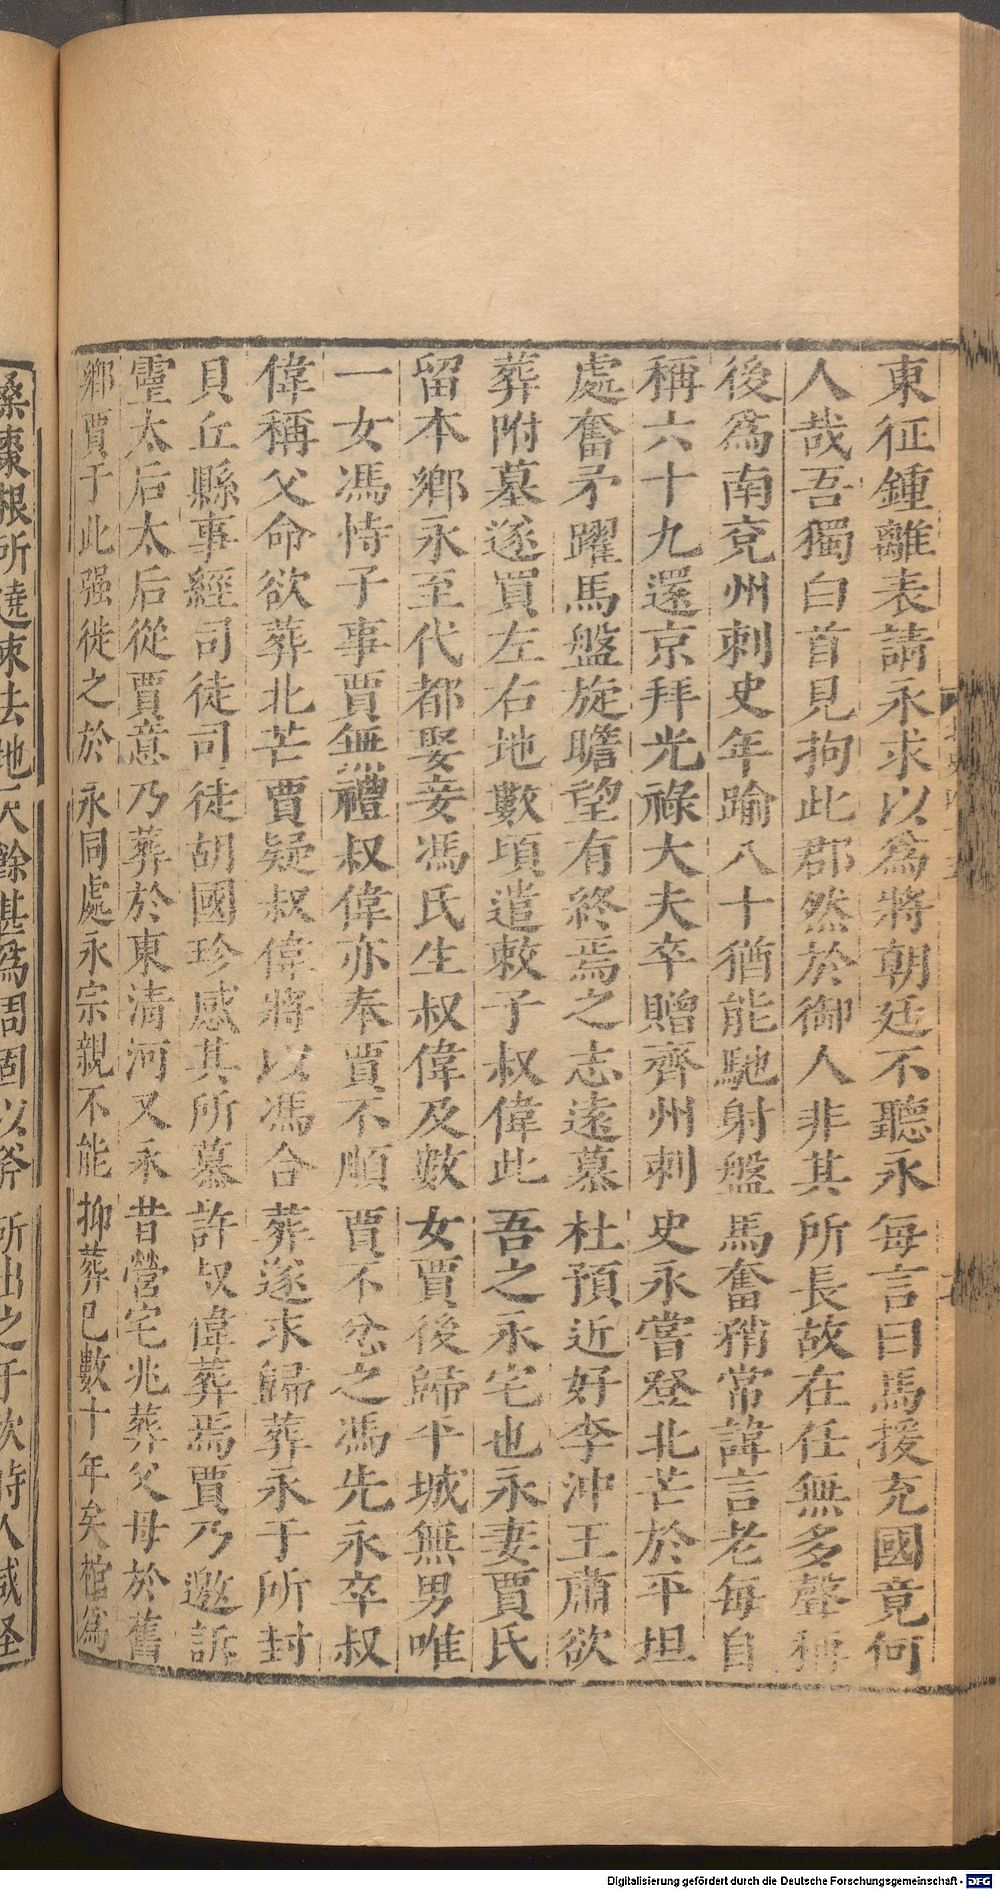 東征鍾離表請永求以爲將朝廷不聽永每言曰馬援充國竟何
人哉吾獨白首見拘此郡然於御人非其所長故在任無多聲稱
後爲南兗州刺史年踰八十猶能馳射盤馬奮矟常諱言老每自
稱六十九還京拜光祿大夫卒贈齊州刺史永嘗登北芒於平坦
處奮矛躍馬盤旋瞻望有終焉之志遠慕杜預近好李沖王肅欲
葬附墓遂買左右地數頃遣敕子叔偉此吾之永宅也永妻賈氏
留本鄉永至代都娶妾馮氏生叔偉及數女賈後歸平城無男唯
一女馮恃子事賈無禮叔偉亦奉賈不順賈不忿之馮先永卒叔
偉稱父命欲葬北芒賈疑叔偉將以馮合葬遂求歸葬永于所封
貝丘縣事經司徒司徒胡國珍感其所慕許叔偉葬焉賈乃邀訴
靈太后太后從賈意乃葬於東清河又永昔營宅兆葬父母於舊
鄉賈于此强徙之於永同處永宗親不能抑葬已數十年矣棺爲
桑棗根所遶束去地尺餘甚爲周固以斧所出之于坎時人咸怪
Digitalisierung gefördert durch die Deutsche Forschungsgemeinschaft - DFG